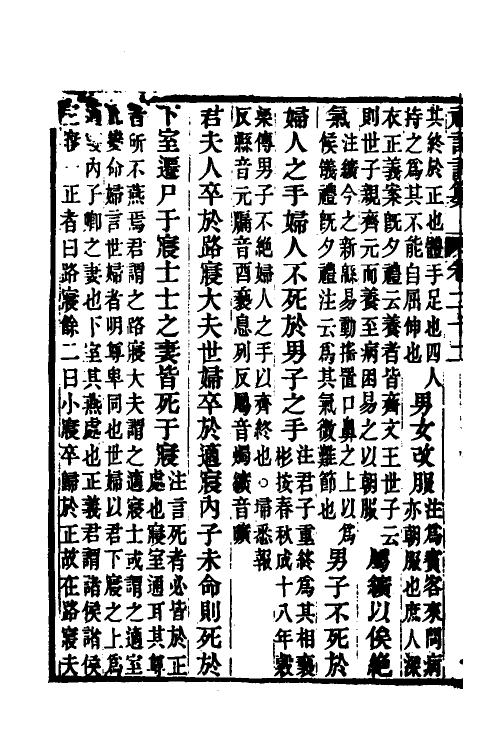 禮記訓纂 卷二十二
其終於正也體手足也四人
持之為其不能自屈伸也
男女改服
注為賓客來問病
亦朝服也庶人深
衣正義案旣夕禮云養者皆齊文王世子云
則世子親齊元而養至病困易之以朝服
屬纊以俟絶
氣
注纊今之新緜易動搖置口鼻之上以為
候儀禮旣夕禮注云為其氣微難節也
男子不死於
婦人之手婦人不死於男子之手
注君子重終為其相褻
彬按春秋成十八年穀
梁傳男子不絶婦人之手以齊終也○埽悉報
反縣音元牖音酉褻息列反屬音燭纊音曠
君夫人卒於路寢大夫世婦卒於適寢內子未命則死於
下室遷尸于寢士士之妻皆死于寢
注言死者必皆於正
處也寢室通耳其尊
者所不燕焉君謂之路寢大夫謂之適寢士或謂之適室
此變命婦言世婦者明尊卑同也世婦以君下寢之上為
適寢內子卿之妻也下室其燕處也正義君謂諸侯諸侯
三寢一正者曰路寢餘二曰小寢卒歸於正故在路寢夫